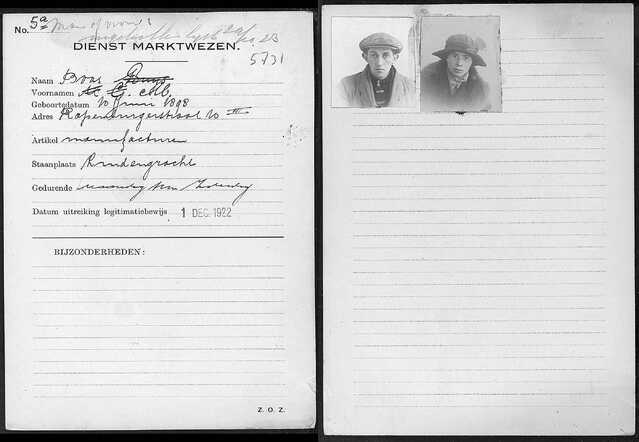 No. 5a Man of vrouw
ingetrokken lijst 20/ 23
5731
DIENST MARKTWEZEN.
Naam Boas
Voornamen G. M.
Geboortedatum 10 Juni 1898
Adres Rapenburgerstraat 10 III
Artikel manufacturen
Staanplaats Lindengracht
Gedurende maandag t/m Zaterdag
Datum uitreiking legitimatiebewijs 1 DEC. 1922
BIJZONDERHEDEN:
Z. O. Z.